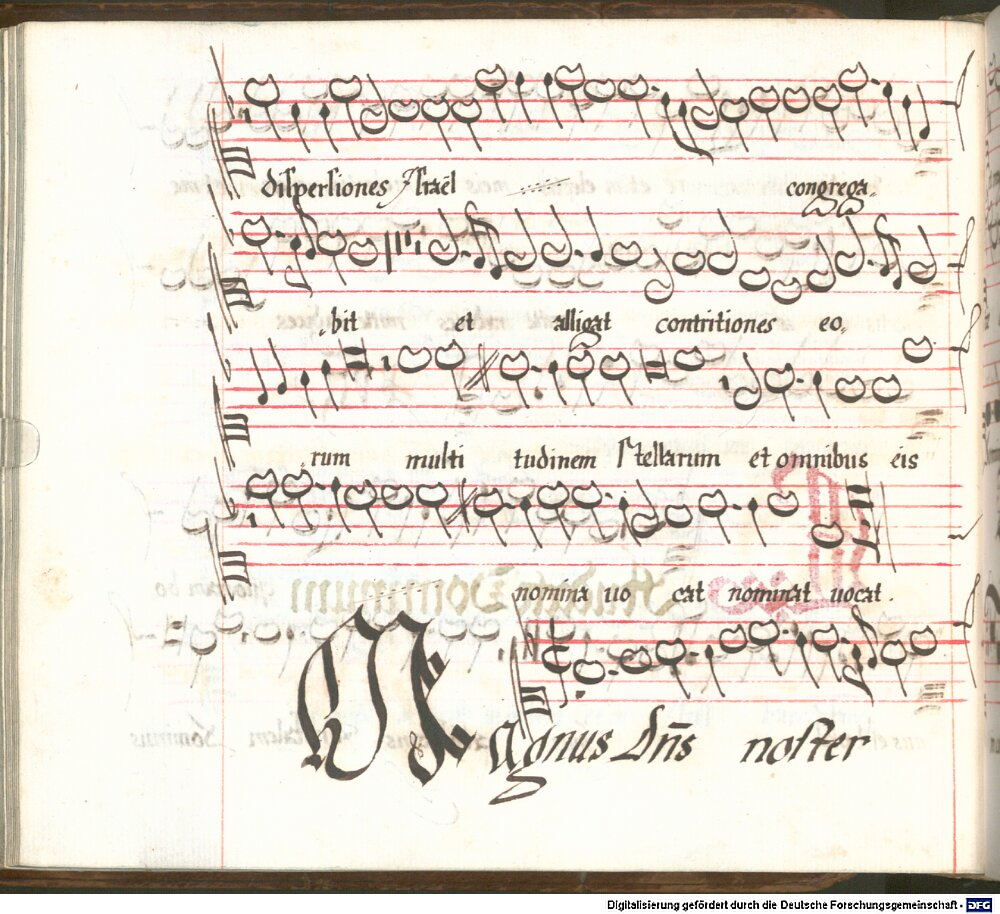 dispersiones Israël congrega,
bit et alligat contritiones eo,
rum multi tudinem stellarum et omnibus eis
nomina uo cat nominat uocat.
Magnus Dns noster
Digitalisierung gefördert durch die Deutsche Forschungsgemeinschaft - DFG